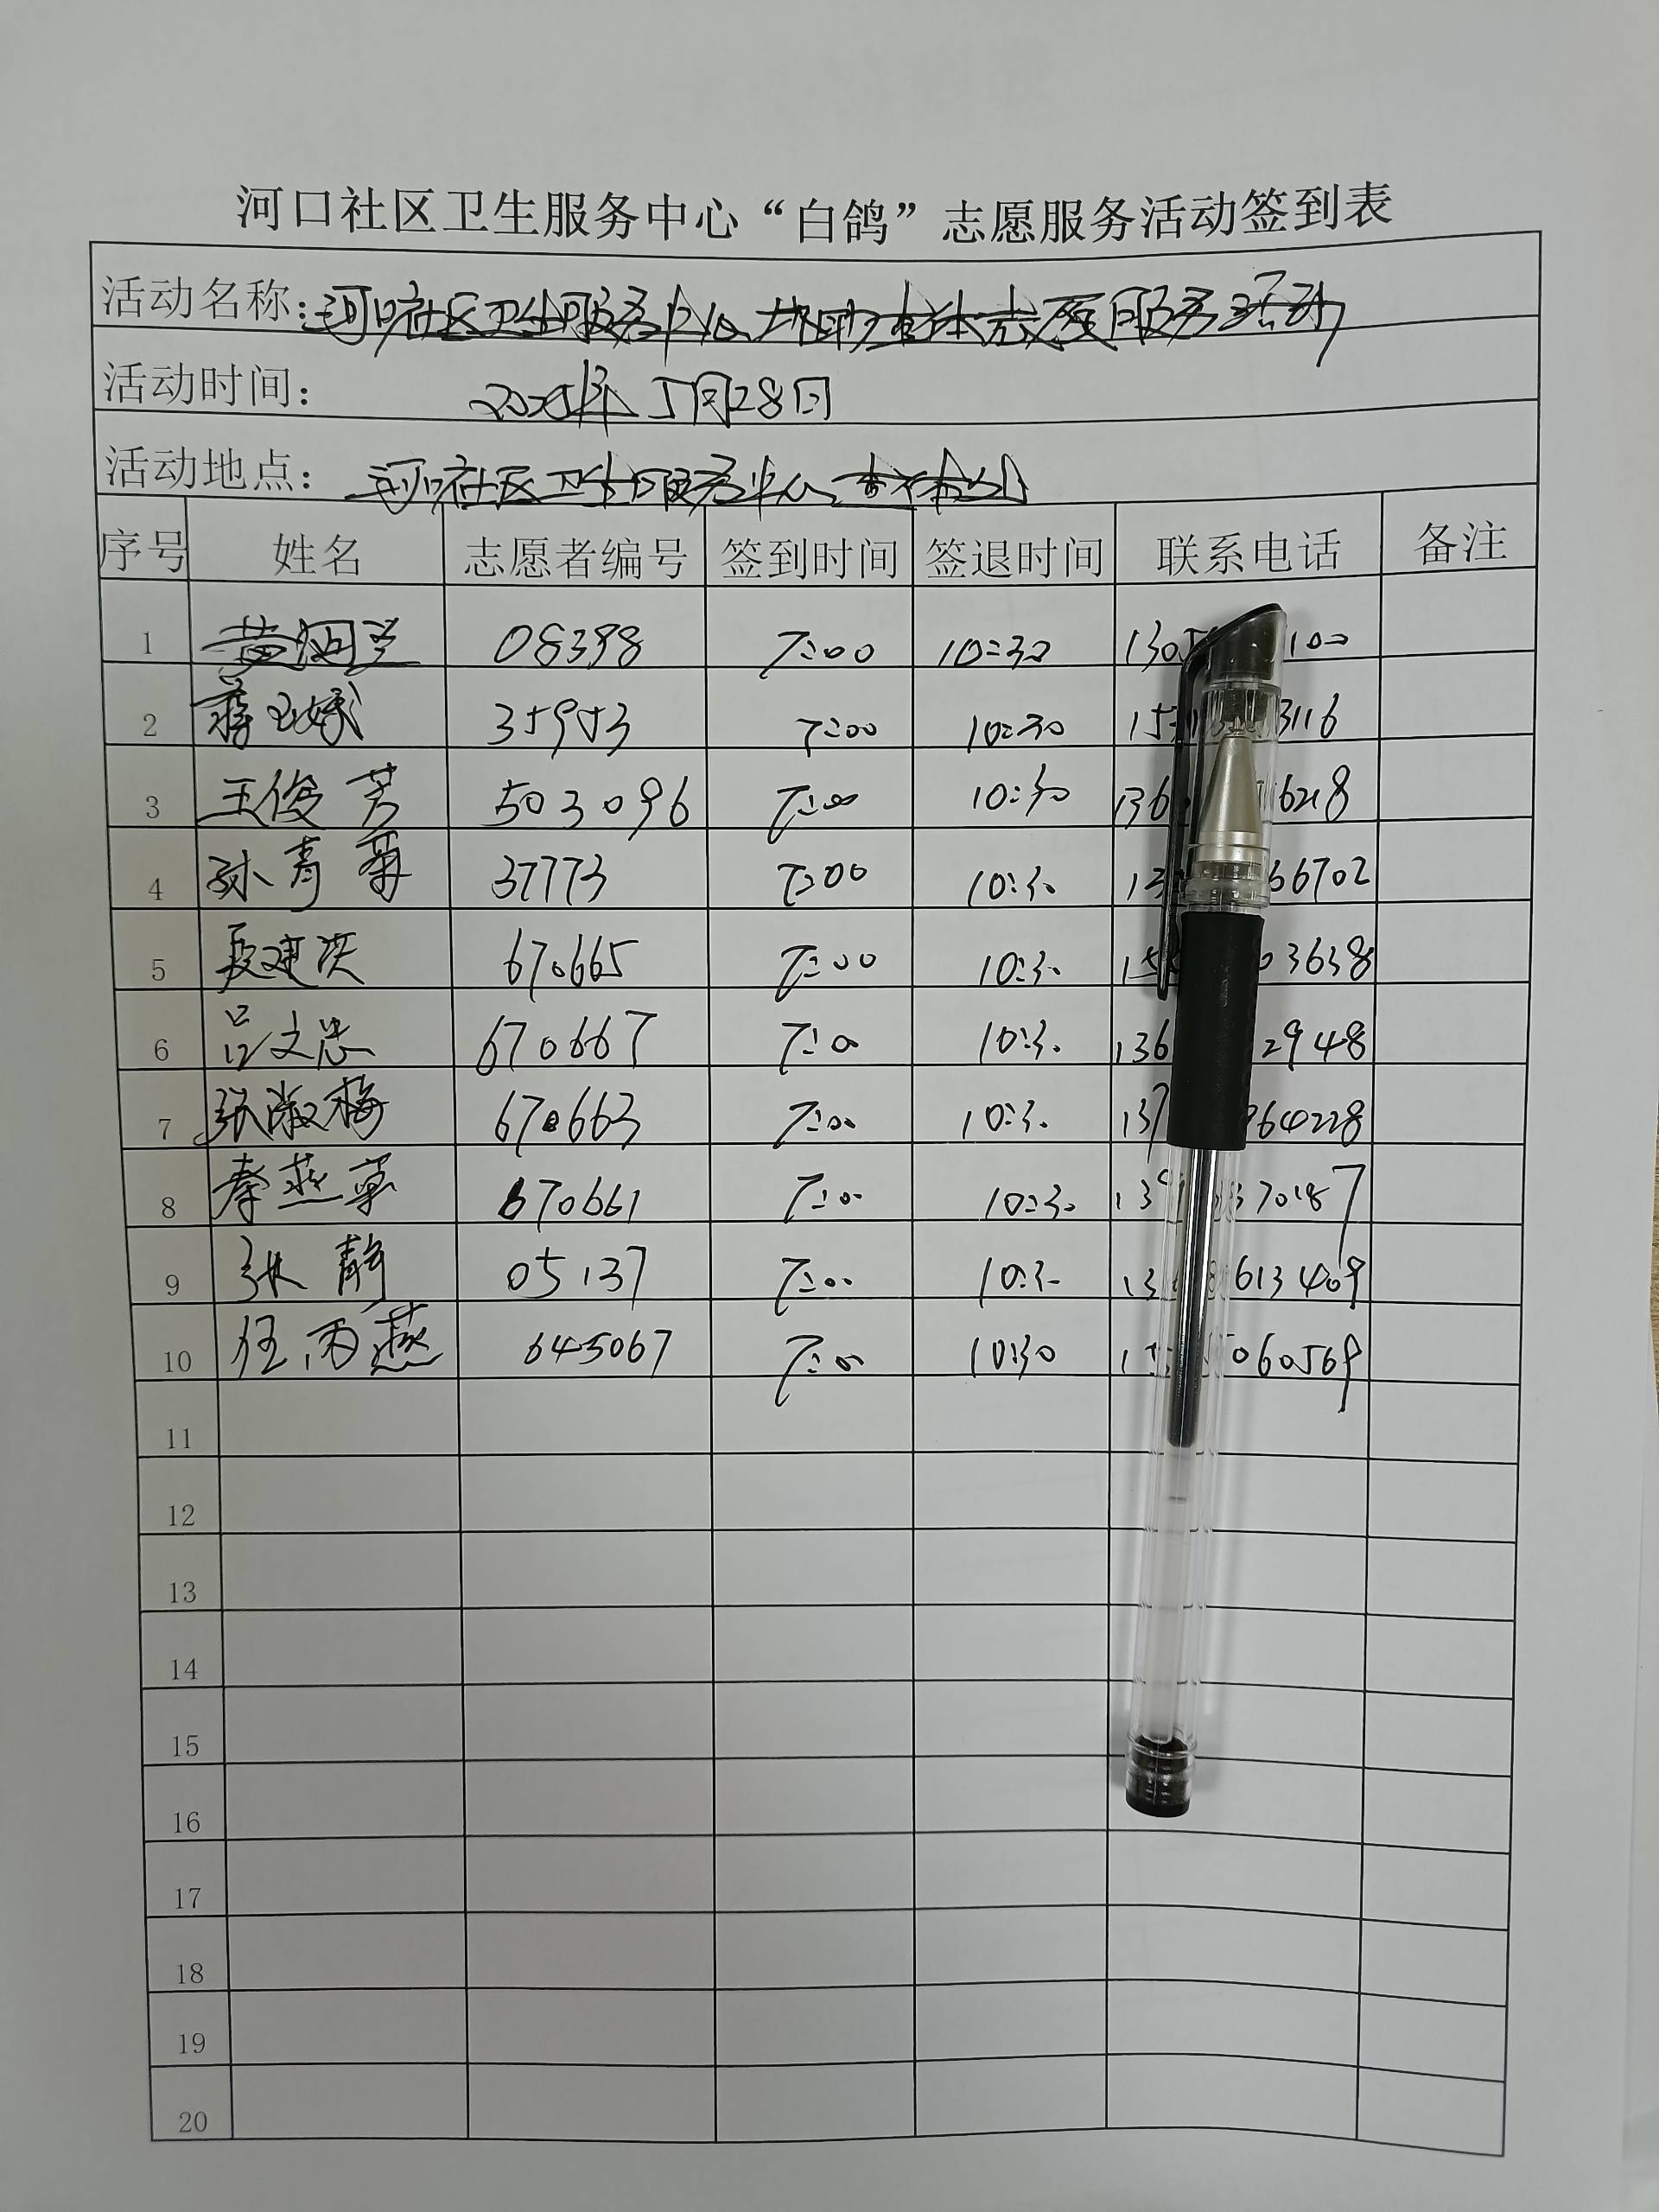 河口社区卫生服务中心“白鸽”志愿服务活动签到表
活动名称：河口社区卫生服务中心协助查体志愿服务活动
活动时间： 2025年5月28日
活动地点： 河口社区卫生服务中心查体处
序号 姓名 志愿者编号 签到时间 签退时间 联系电话 备注
1 08398 7:00 10:30 130 100
2 蒋玉娥 35953 7:00 10:30 15 3116
3 王俊芳 503096 7:00 10:30 136 6218
4 孙青菊 37773 7:00 10:30 13 66702
5 段建洪 670665 7:00 10:30 15 03638
6 吕文忠 670667 7:00 10:30 136 2948
7 张淑梅 670663 7:00 10:30 137 964228
8 秦燕 670661 7:00 10:30 13 370187
9 张静 05137 7:00 10:30 13 613409
10 任雨燕 645067 7:00 10:30 1 060569
11
12
13
14
15
16
17
18
19
20